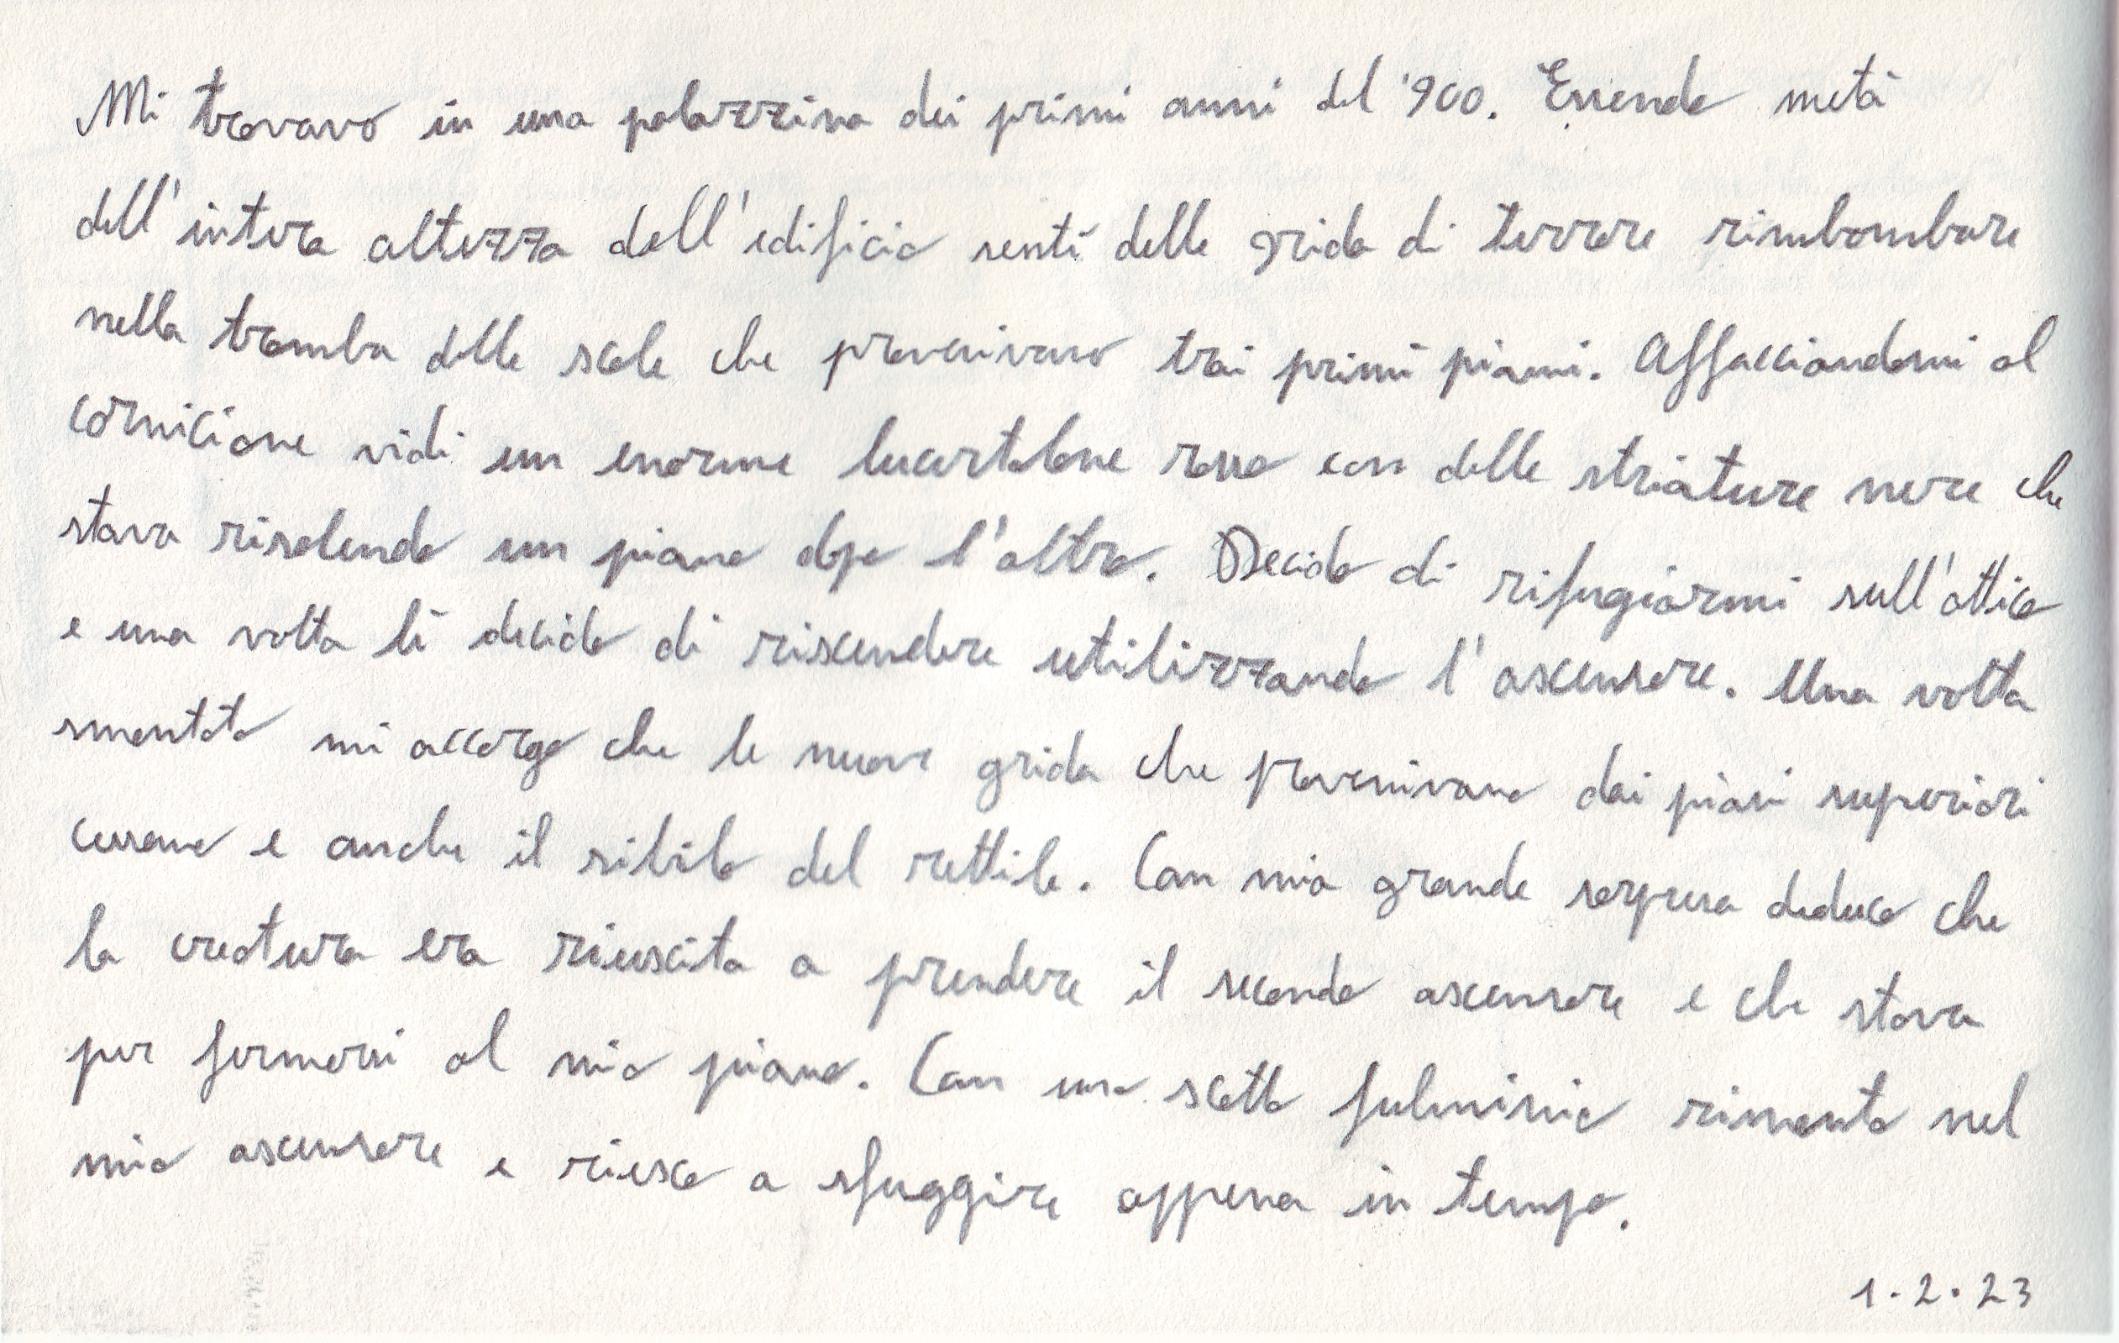 Mi trovavo in una palazzina dei primi anni del '900. Essendo metà
dell'intera altezza dell'edificio sentì delle grida di terrore rimbombare
nella tromba delle scale che provenivano trai primi piani. Affacciandomi al
cornicione vidi un enorme lucertolone rosso con delle striature nere che
stava risalendo un piano dopo l'altro. Decido di rifugiarmi sull'attico
e una volta lì decido di riscendere utilizzando l'ascensore. Una volta
smontato mi accorgo che le nuove grida che provenivano dai piani superiori
cessano e anche il sibilo del rettile. Con mia grande sorpresa deduco che
la creatura era riuscita a prendere il secondo ascensore e che stava
per fermarsi al mio piano. Con uno scatto fulminio rimonto nel
mio ascensore e riesco a sfuggire appena in tempo.
1.2.23